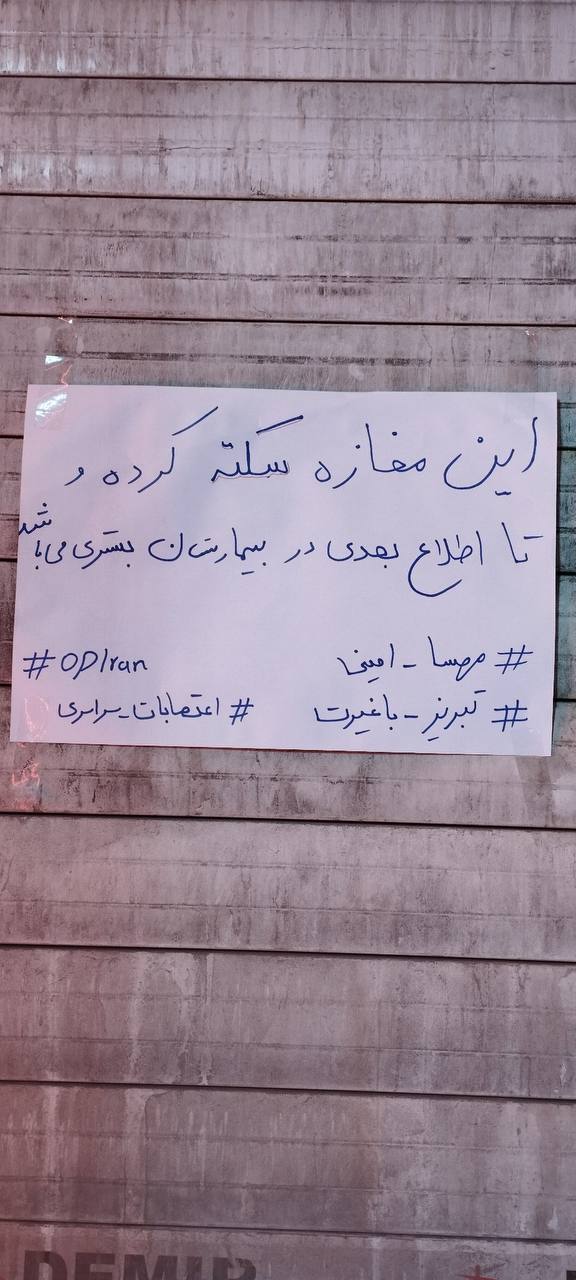 این مغازه سکته کرده و
تا اطلاع بعدی در بیمارستان بستری می باشد
#مهسا_امینی #OPIran
#تبریز_باغیرت #اعتصابات_سراسری
DEMIR